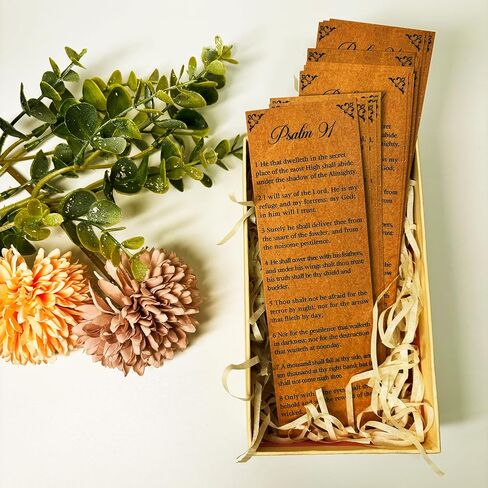 Psalm 91
1 He that dwelleth in the secret
place of the most High shall abide
under the shadow of the Almighty.
2 I will say of the Lord, He is my
refuge and my fortress: my God;
in him will I trust.
3 Surely he shall deliver thee from
the snare of the fowler, and from
the noisome pestilence.
4 He shall cover thee with his feathers,
and under his wings shalt thou trust:
his truth shall be thy shield and
buckler.
5 Thou shalt not be afraid for the
terror by night; nor for the arrow
that flieth by day;
6 Nor for the pestilence that walketh
in darkness; nor for the destruction
that wasteth at noonday.
7 A thousand shall fall at thy side, and
ten thousand at thy right hand; but it
shall not come nigh thee.
8 Only with thine eyes shalt thou
behold and see the reward of the
wicked.
Psalm 91